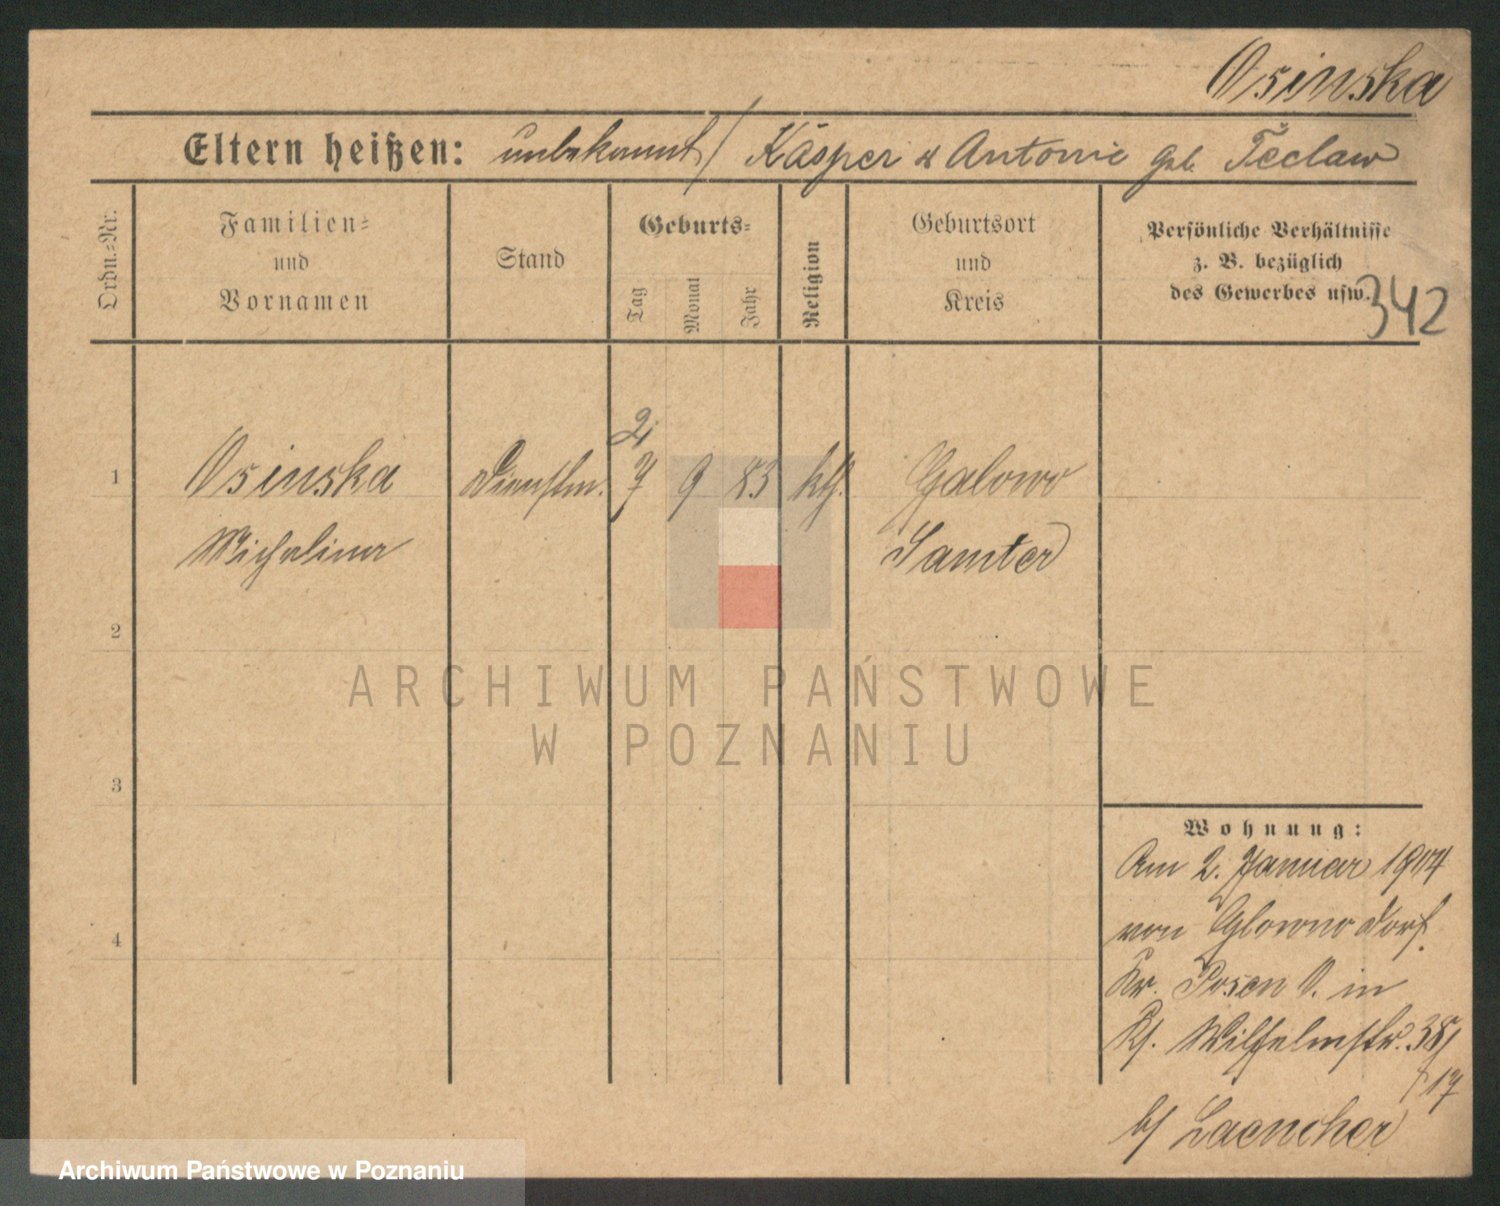 Osinska
Eltern heißen: unbekannt / Kasper & Antonie geb. Teclaw
Ordn.-Nr.
Familien- und Vornamen
Stand
Geburts-
Tag
Monat
Jahr
Religion
Geburtsort und Kreis
Persönliche Verhältnisse
z. B. bezüglich
des Gewerbes usw.
342
2
1 Osinska Dienstm. 7 9 83 kth. Galowo
Michalina Samter
2
3
4
Wohnung:
Am 2. Januar 1904
von Glowno Dorf
Kr. Posen O. in
Wilhelmstr.
b/
ARCHIWUM PAŃSTWOWE
W POZNANIU
Archiwum Państwowe w Poznaniu